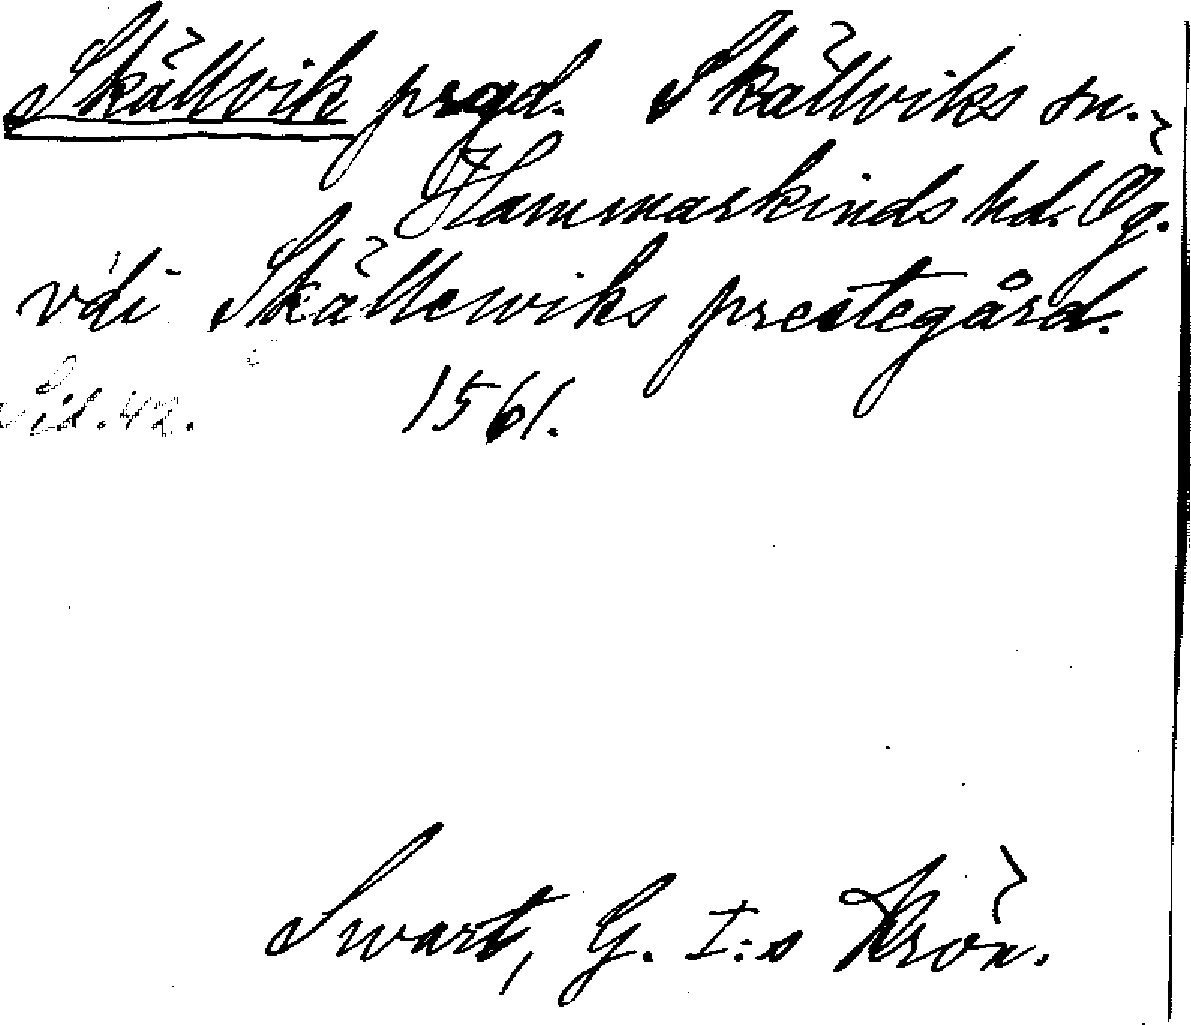 Skällvik prgd. Skällviks sn.
Hammarkinds hd. Ög.
vdi Skällewiks prestegård.
Sid. 42. 1561.
Swart, G. I:s Krön.